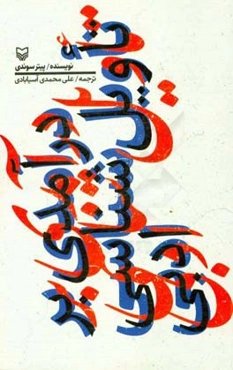 نویسنده/ پیتر سوندی
ترجمه/ علی محمدی آسیابادی
درآمدی بر
تأویل شناسی
ادبی